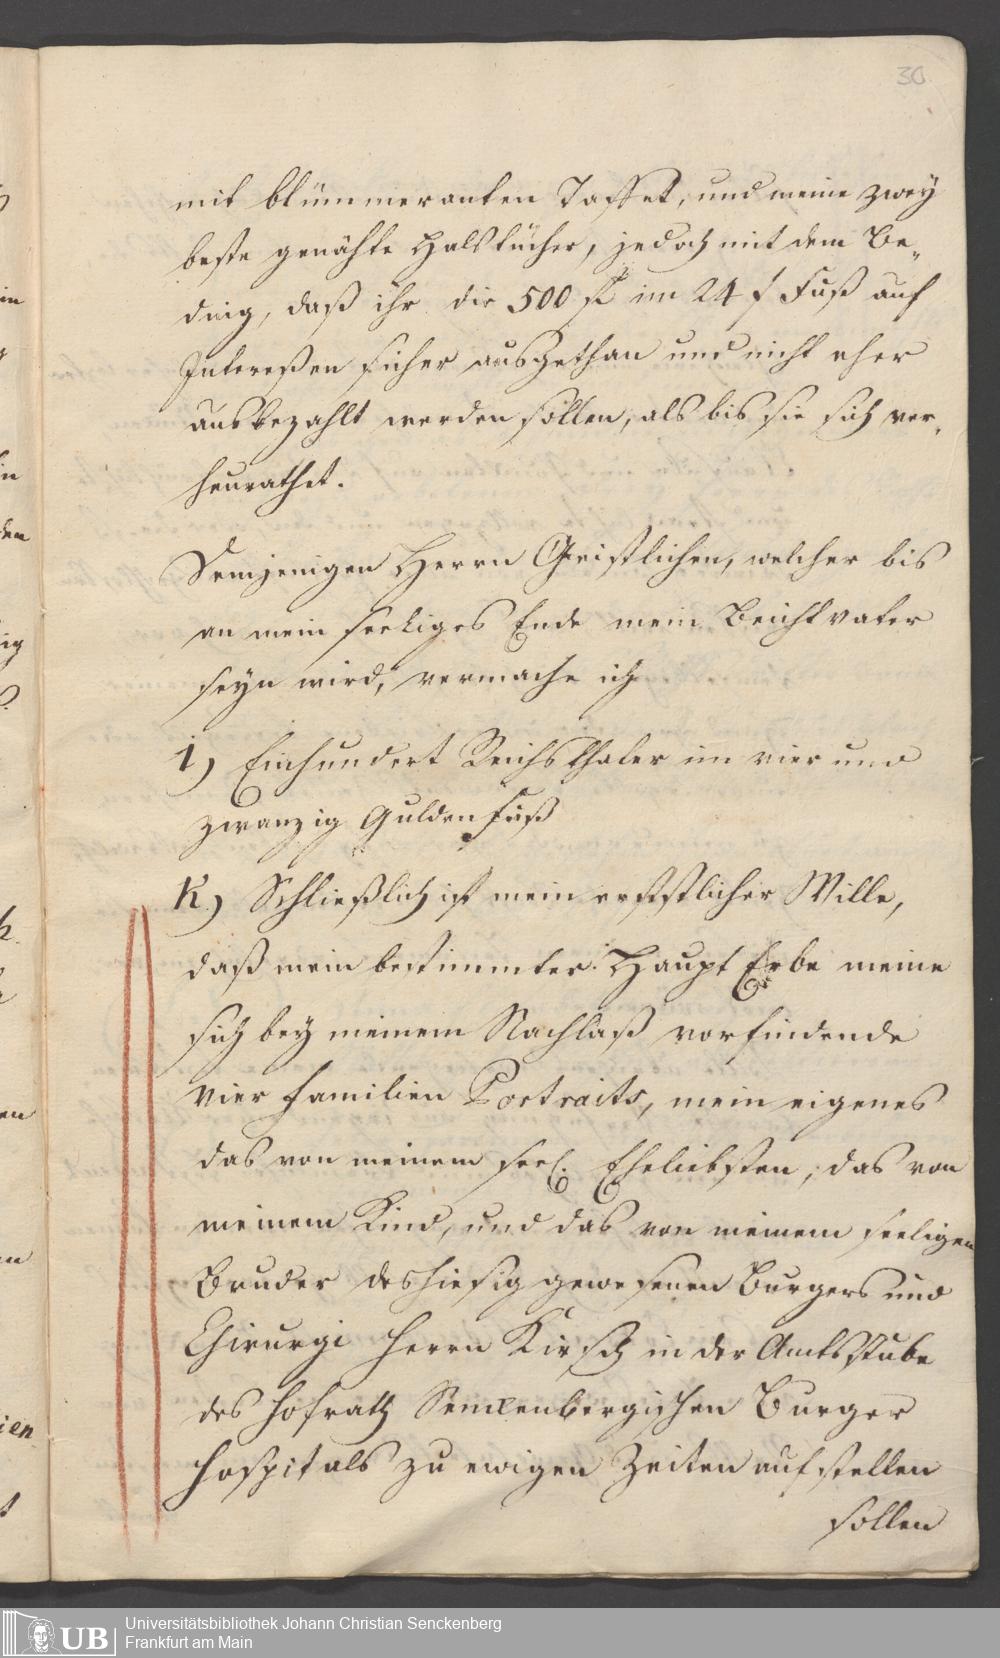 30
mit blümmeranten Taffet, und meine zwey
beste genähte Halstücher, jedoch mit dem Be„
ding, daß ihr die 500 fl im 24 f Fuß auf
Intereßen sicher ausgethan und nicht eher
ausbezahlt werden sollen, als bis sie sich ver„
heurathet.
Demjenigen Herrn Geistlichen, welcher bis
an mein seeliges Ende mein Beichtvater
seyn wird, vermache ich
i) Einhundert Reichsthaler im vier und
zwanzig Gulden Fuß
K) Schließlich ist mein ernstlicher Wille,
daß mein bestimmter Haupt Erbe meine
sich bey meinem Nachlaß vorfindende
vier Familien Portraits, mein eigenes
das von meinem seel. Eheliebsten, das von
meinem Kind, und das von meinem seeligen
Bruder des hiesig gewesenen Burgers und
Chirurgi Herrn Kirsch in der Amtsstube
des Hofrath Senckenbergischen Burger
Hospitals zu ewigen Zeiten aufstellen
sollen
UB
Universitätsbibliothek Johann Christian Senckenberg
Frankfurt am Main